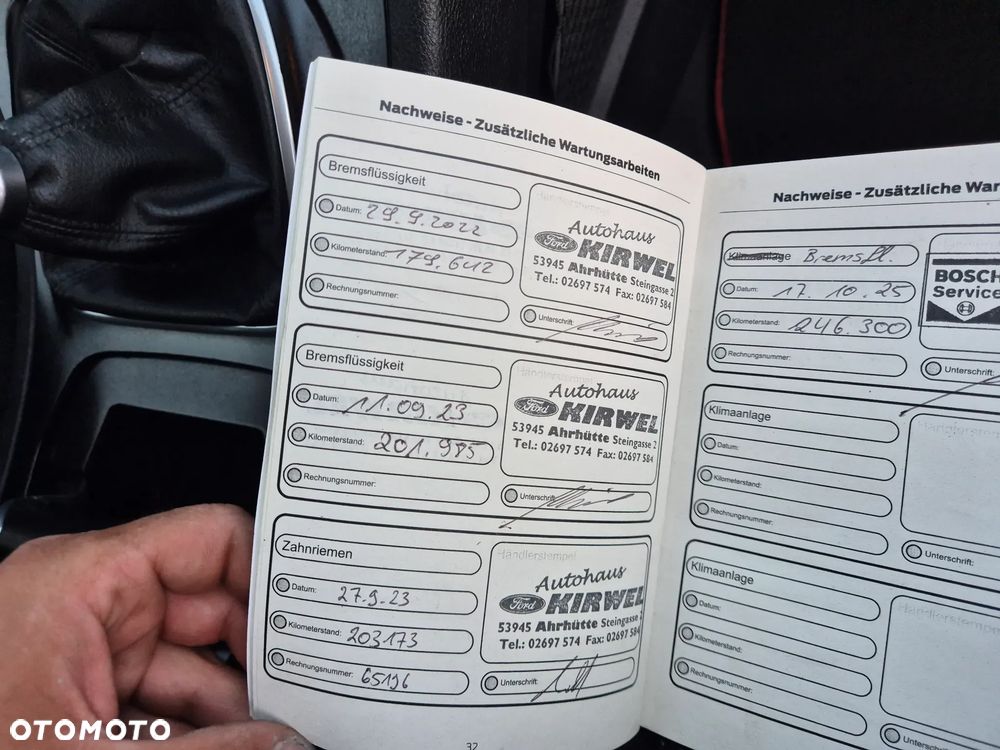 Nachweise - Zusätzliche Wartungsarbeiten
Bremsflüssigkeit
Datum: 29.9.2022
Kilometerstand: 179.642
Rechnungsnummer:
Händlerstempel
Autohaus
Ford KIRWEL
53945 Ahrhütte Steingasse 2
Tel.: 02697 574 Fax: 02697 584
Unterschrift:
Bremsflüssigkeit
Datum: 11.09.23
Kilometerstand: 201.985
Rechnungsnummer:
Händlerstempel
Autohaus
Ford KIRWEL
53945 Ahrhütte Steingasse 2
Tel.: 02697 574 Fax: 02697 584
Unterschrift:
Zahnriemen
Datum: 27.9.23
Kilometerstand: 203173
Rechnungsnummer: 65196
Händlerstempel
Autohaus
Ford KIRWEL
53945 Ahrhütte Steingasse 2
Tel.: 02697 574 Fax: 02697 584
Unterschrift:
32
Nachweise - Zusätzliche War
Klimaanlage Bremsfl.
Datum: 17.10.25
Kilometerstand: 246.300
Rechnungsnummer:
BOSCH
Service
Unterschrift:
Klimaanlage
Datum:
Kilometerstand:
Rechnungsnummer:
Händlerstempel
Unterschrift:
Klimaanlage
Datum:
Kilometerstand:
Rechnungsnummer:
Händlerstempel
Unterschrift:
OTOMOTO